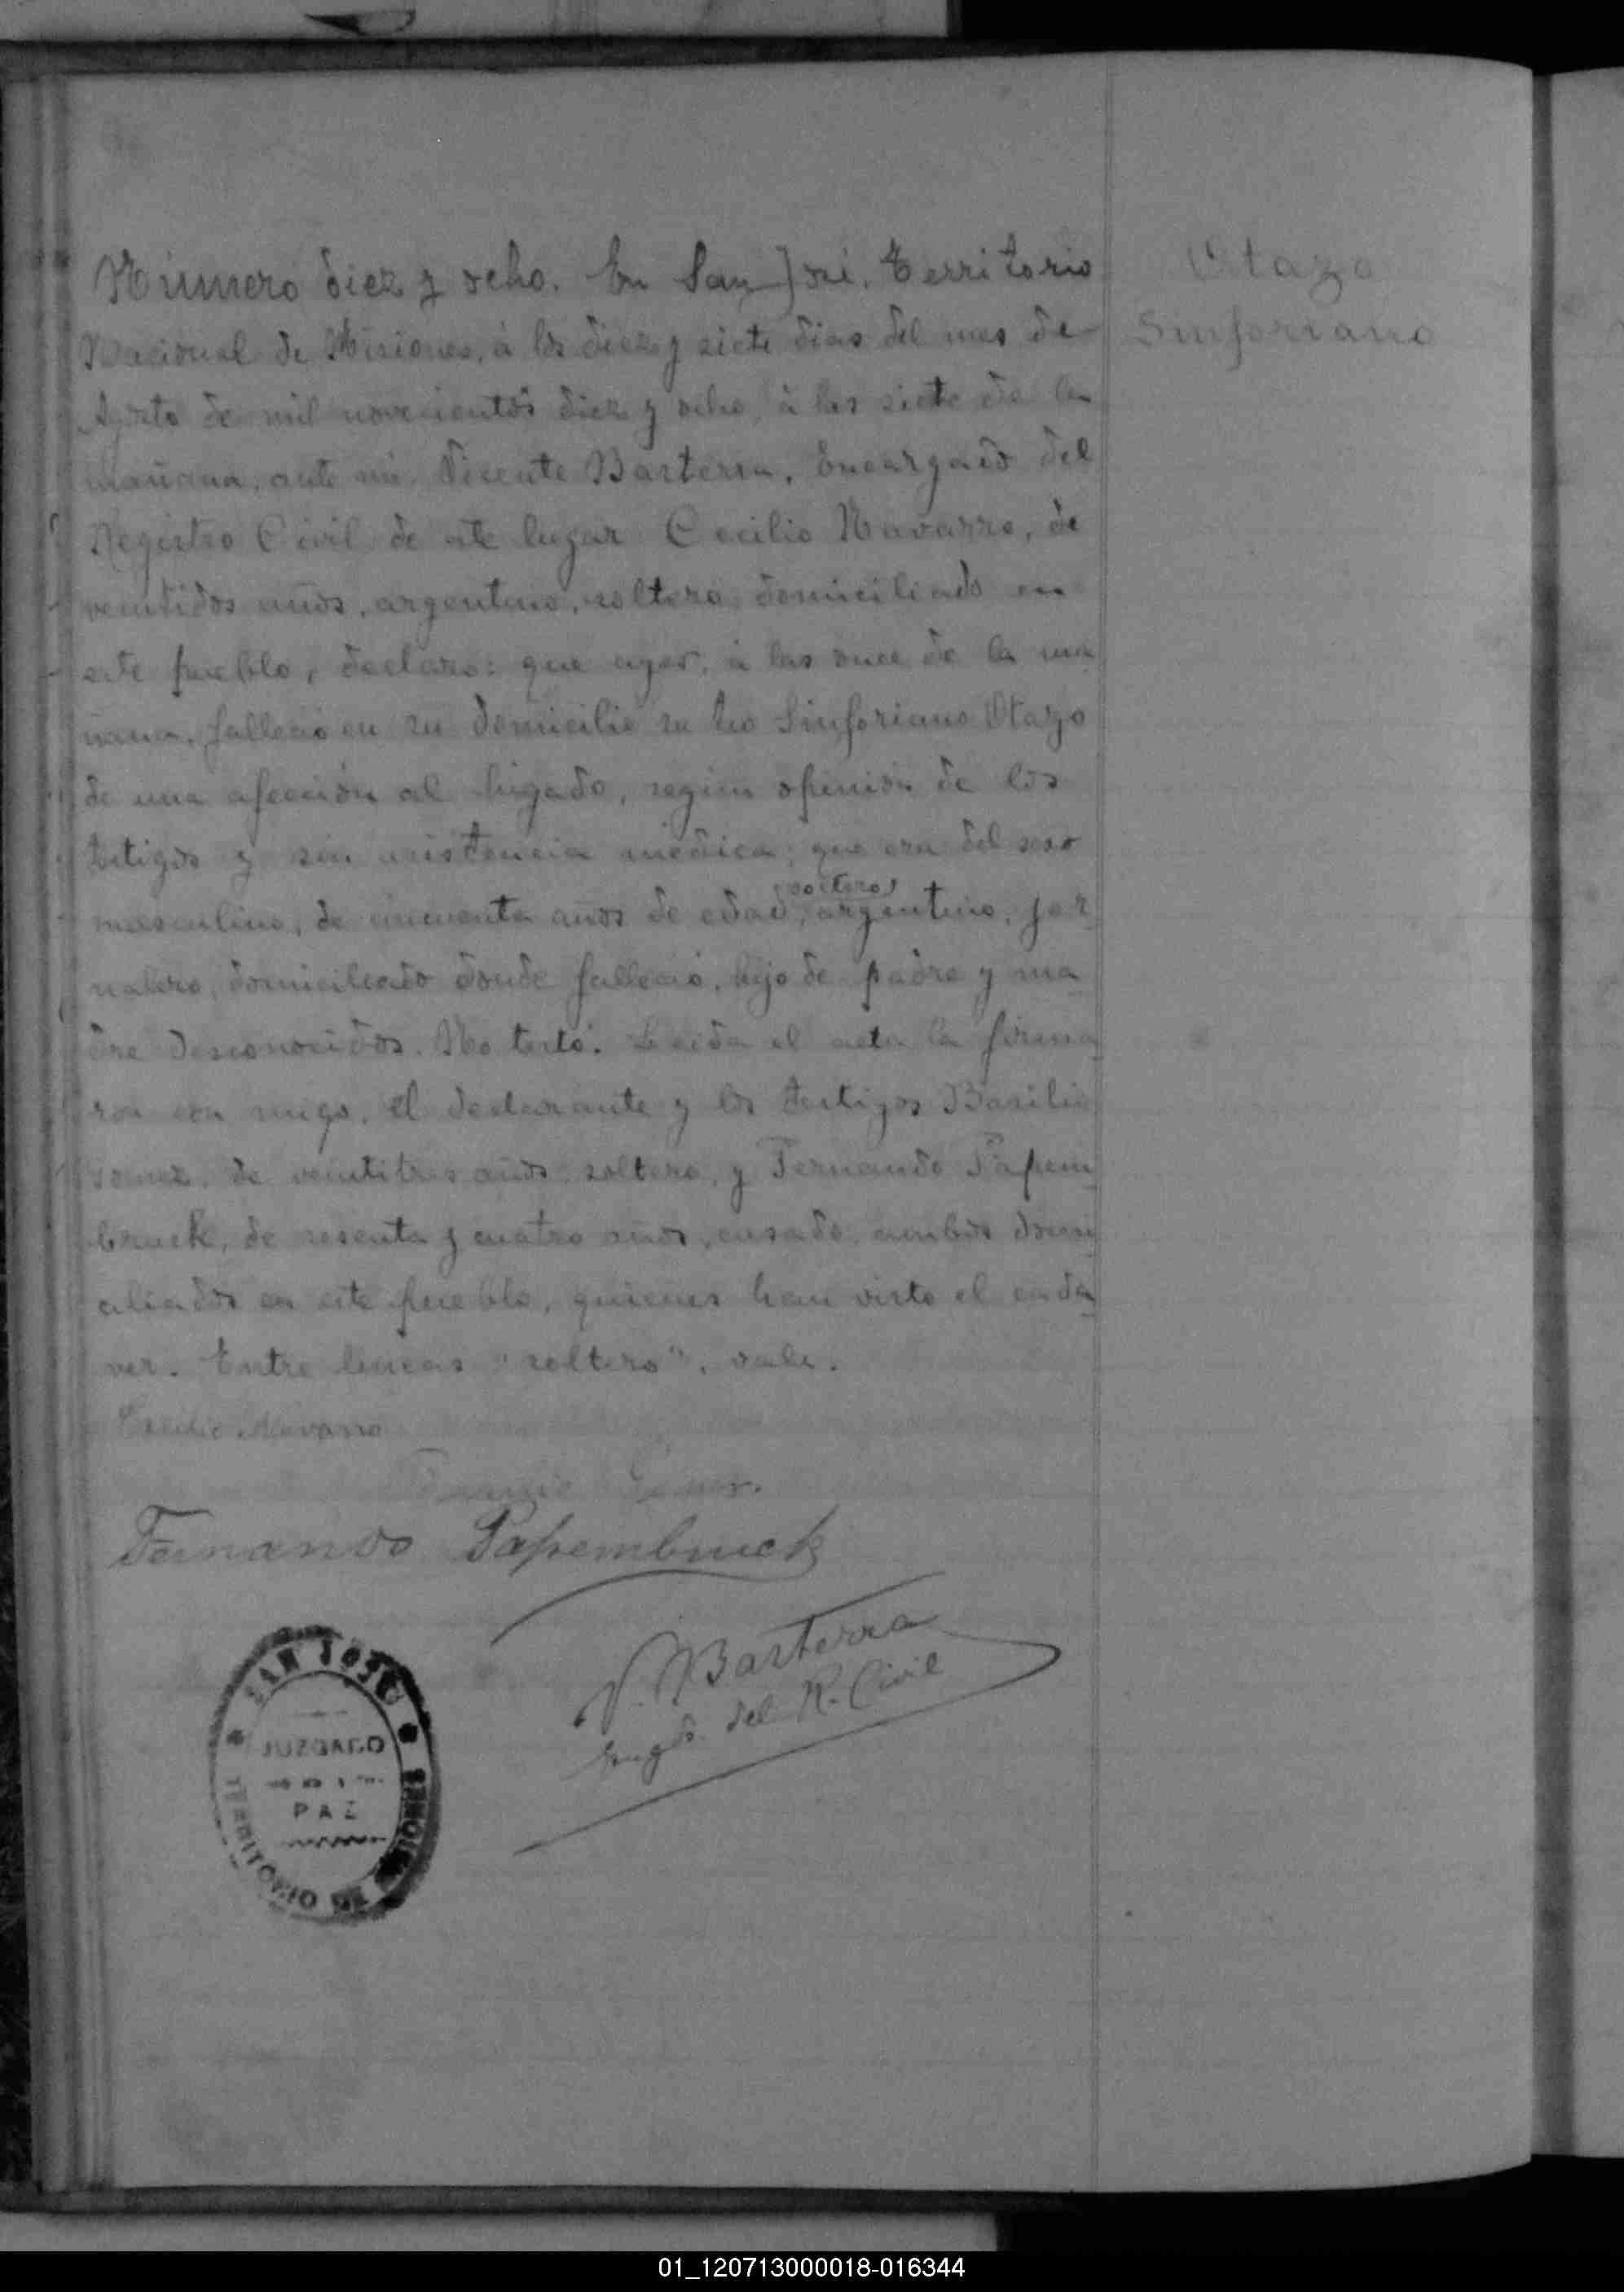 Número diez y ocho. En San José, Territorio
Nacional de Misiones, á los diez y siete dias del mes de
Agosto de mil novecientos diez y ocho, á las siete de la
mañana, ante mi Vicente Basterra, Encargado del
Registro Civil de este lugar Cecilio Navarro, de
veintidos años, argentino, soltero domiciliado en
este pueblo, declaro: que ayer, á las once de la ma
ñana, falleció en su domicilio su tio Sinforiano Otazo
de una afección al higado, según opinión de los
testigos y sin asistencia médica; que era del sexo
(soltero)
masculino, de cincuenta años de edad, argentino, jor
nalero, domiciliado donde falleció, hijo de padre y ma
dre desconocidos. No testó. Leida el acta la firma
ron con migo, el declarante y los testigos Basilio
Gomez, de veintitres años soltero, y Fernando Papem
bruck, de sesenta y cuatro años, casado, ambos domi
ciliados en este pueblo, quienes han visto el cada
ver. Entre lineas "soltero", vale.
Otazo
Sinforiano
Cecilio Navarro
Fernando Papembruck
V. Basterra
Engdo. del R. Civil
SAN JOSÉ
JUZGADO
DE
PAZ
TERRITORIO DE MISIONES
01_120713000018-016344